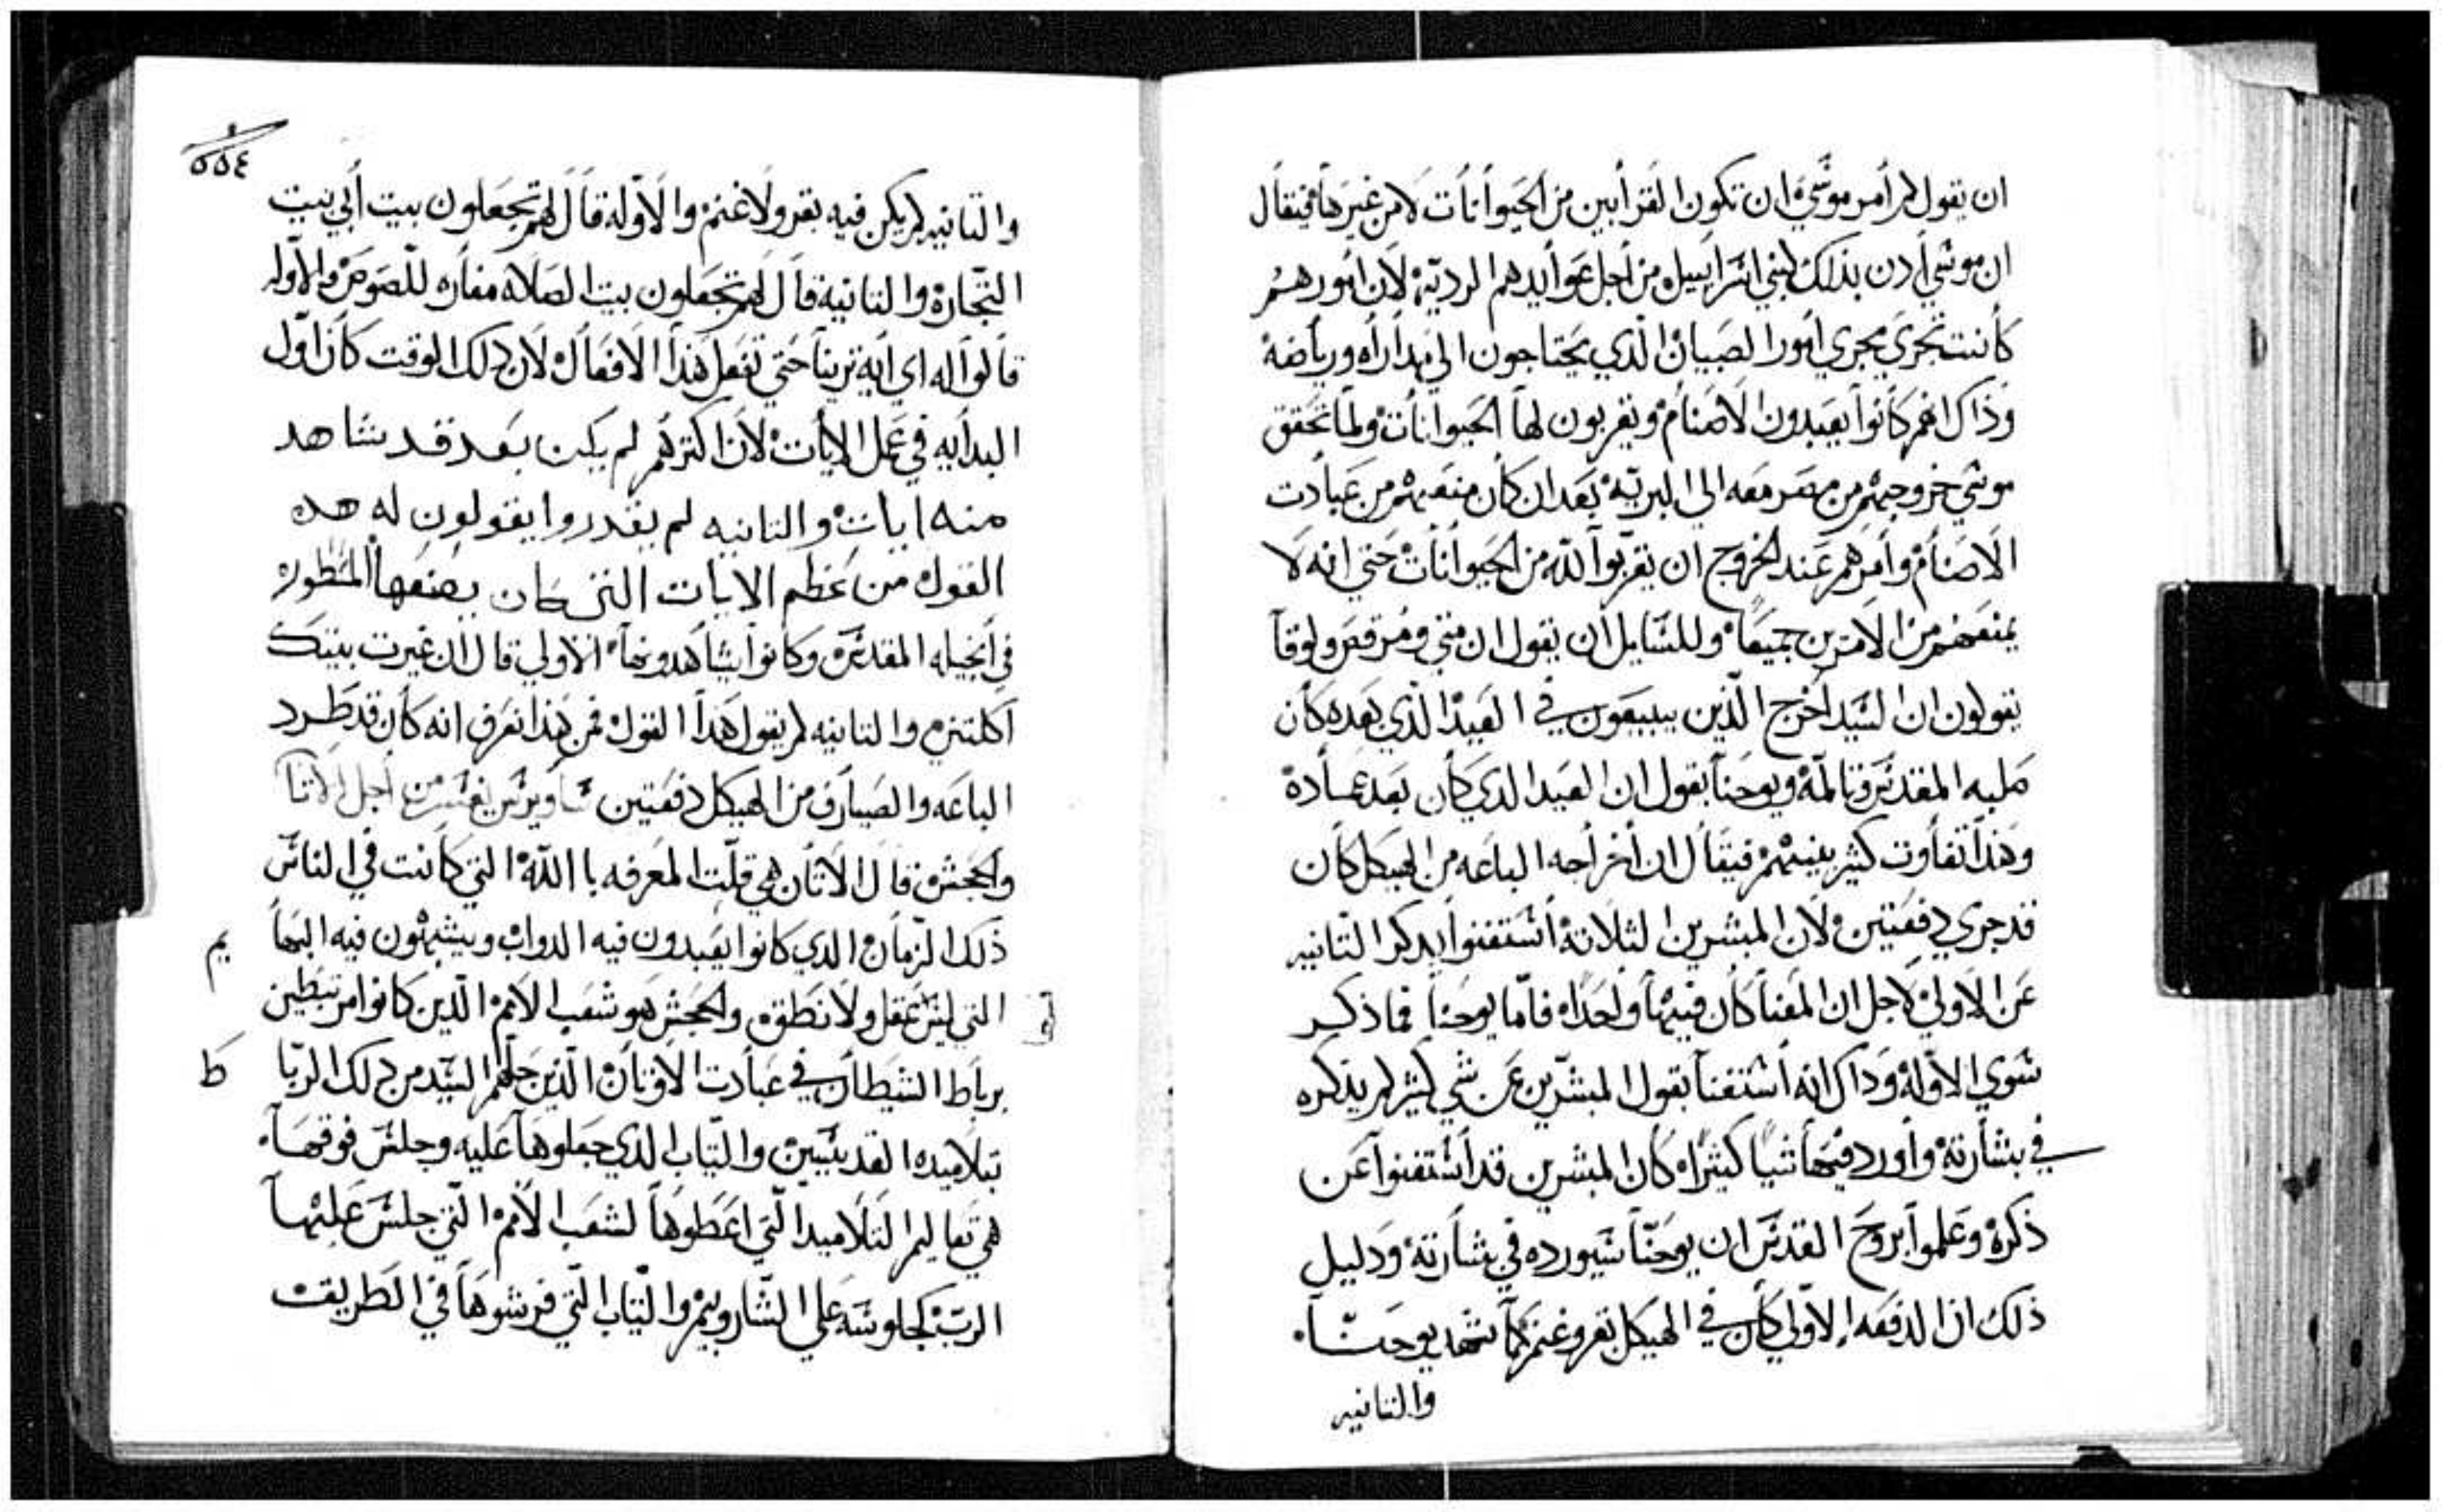 ان يقول لم أمر موسي ان تكون القرأبين من الحيوانات لا من غيرها فيقال
ان موسي أدن بذلك لبني اسرأييل من أجل عوأيدهم الرديّة لان امورهم
كأنت تجري مجري امور الصبيان الّذي يحتاجون الي مدأراه ورياضة
وذاك انهم كأنوا يعبدون الاصنام ويقربون لها الحيوانات ولمّا تحقق
موسي خروجهم من مصر معه الي البريّة بعد ان كأن منعهم من عبأدت
الاصنام وأمرهم عند الخروج ان يقربوا للّه من الحيوانات حتي انه لا
يمنعهم من الامرين جميعًا وللسّايل أن يقول ان متي ومرقص ولوقا
يقولون ان السّيد أخرج الّذين يبيعون في العيد الذي بعده كأن
صلبه المقدس وتالمه ويوحنا يقول ان العيد الدي كأن بعد عمأده
وهذا تفأوت كثير بينهم فيقأل ان أخرأجه الباعه من الهيكل كأن
قد جري دفعتين لان المبشرين الثلاتة أستغنوا بدكر التانيه
عن الاولي لاجل ان المعنا كأن فيهما وأحدًا فامّا يوحنا فما ذكر
سوي الاوله وداك انه أستغنا بقول المبشّرين عن شي كثير لم يذكره
في بشأرته وأورد فيها شيا كثيرًا كأن المبشرين قد أستغنوا عن
ذكره وعلموا بروح القدس ان يوحنّا سيورده في بشأرته ودليل
ذلك ان الدفعه الاولي كأن في الهيكل بقر وغنم كما شهد يوحنّا
والتانيه
٥٥٤
والتانيه لم يكن فيه بقر ولا غنم والاوله قال لهم تجعلون بيت أبي بيت
التّجارة والتانية قال لهم تجعلون بيت الصلاه مغاره للّصوص والاوله
قألوا له اي اية ترينا حتي تفعل هذا الافعال لان دلك الوقت كأن اوّل
البدأيه في عمل الايات لان اكترهم لم يكن بعد قد شاهد
منه ايات والتانيه لم يقدروا يقولون له هده
القول من عظم الايات التى كان يصنعها المسطوره
في أنجيله المقدس وكانوا يشاهدونها الاولي قال ان غيرت بيتك
أكلتني والتانيه لم يقول هدا القول فمن هذا نعرف انه كأن قد طرد
الباعه والصيارف من الهيكل دفعتين ساويرس يفسر من أجل الاتنا
والجحش قال الاتأن هي قلّت المعرفه با اللّه التي كأنت في الناس
ذلك الزمان الدي كانوا يعبدون فيه الدواب ويشبهون فيه البها
يم
التي ليس عقل ولا نطق والجحش هو شعب الامم الّدين كانوا مرتبطين
بربأط الشيطان في عبأدت الاوتان الّذين حلّهم السّيد من دلك الربّا
ط
بتلاميده القديسين والتياب الذي جعلوها عليه وجلس فوقها
هي تعاليم التلاميد الّتي اعطوها لشعب الامم الّتي جلس عليها
الربّ كجلوسه علي الشّاروبيم والتياب الّتي فرشوها في الطريق